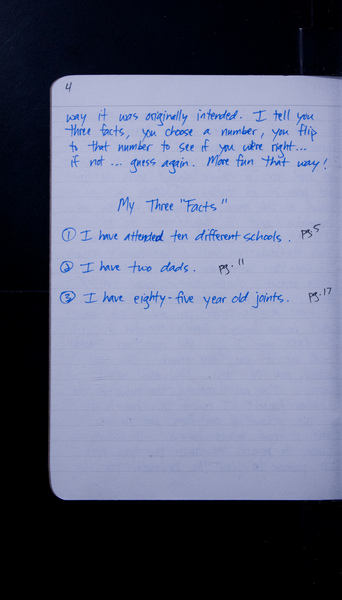 4
way it was originally intended. I tell you
three facts, you choose a number, you flip
to that number to see if you were right...
if not ... guess again. More fun that way!
My Three "Facts"
① I have attended ten different schools. pg.5
② I have two dads. pg. 11
③ I have eighty-five year old joints. pg.17